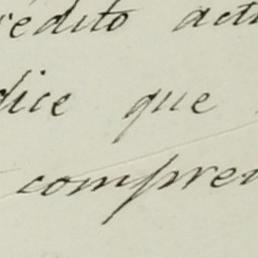 rédito act
dice que
compren